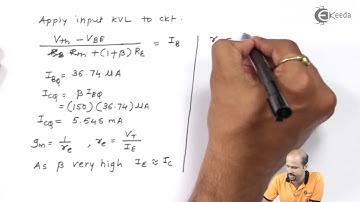 Apply input KVL to ckt.
Vth - VBE / Rm + (1+β) RE = IB
IBQ = 36.74 μA
ICQ = β IBQ
= (150) (36.74 μA)
ICQ = 5.545 mA
gm = 1/re , re = VT/IE
As β very high IE ≈ IC
Ekeeda